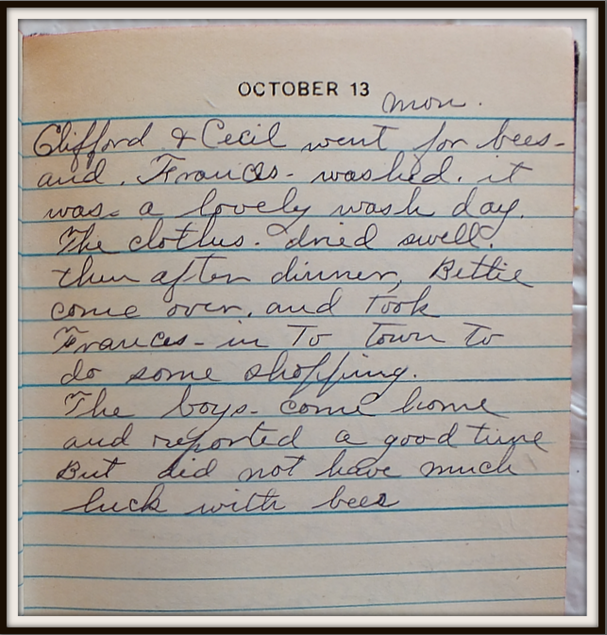 OCTOBER 13
Mon.
Clifford & Cecil went for bees-
and. Frances- washed. it
was- a lovely wash day.
The clothes. dried swell.
then after dinner, Bettie
come over. and Took
Frances- in To Town To
do some shopping.
The boys- come home
and reported a good time
But did not have much
luck with bees